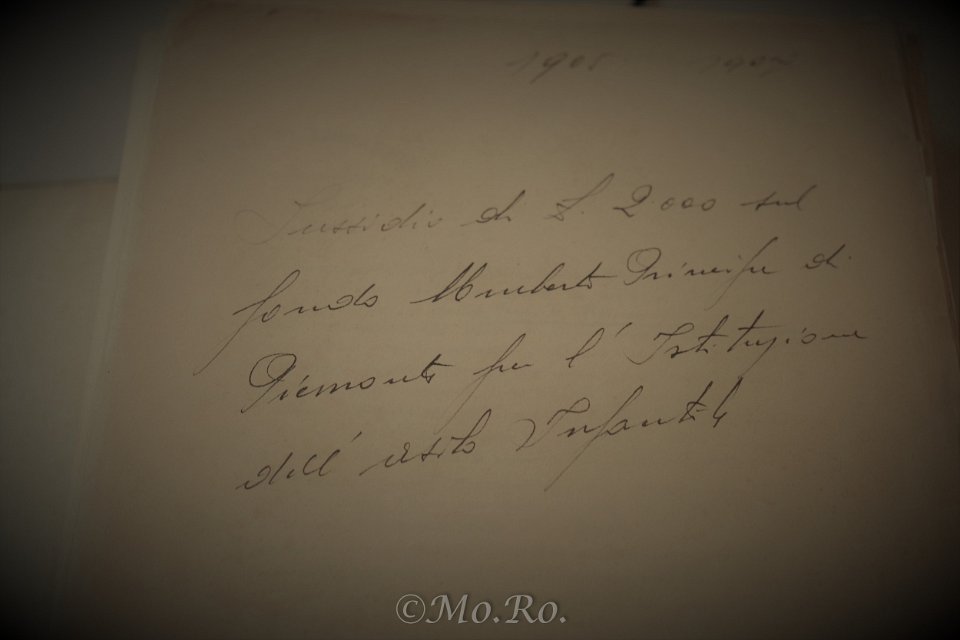 1905 1907
Sussidio di L. 2000 sul
fondo Umberto Principe di
Piemonte per l' Istituzione
dell' asilo Infantile
©Mo.Ro.